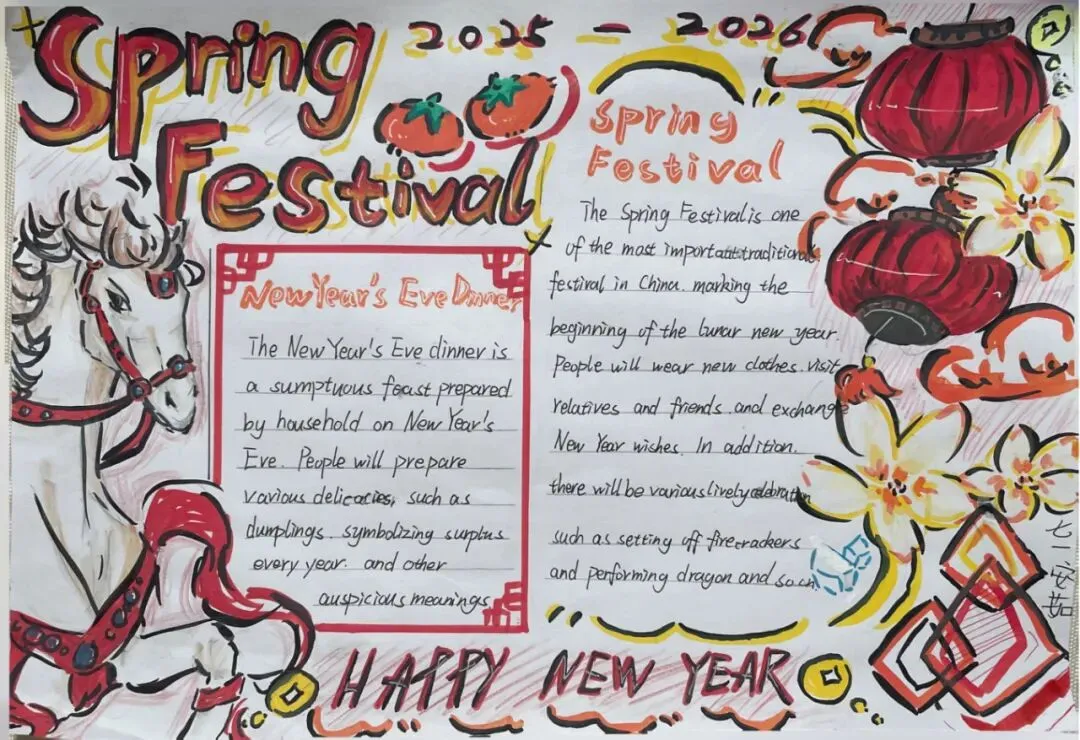 Spring
Festival
2025 - 2026
New Year's Eve Dinner
The New Year's Eve dinner is
a sumptuous feast prepared
by household on New Year's
Eve. People will prepare
various delicacies, such as
dumplings. symbolizing surplus
every year. and other
auspicious meanings
Spring
Festival
The Spring Festival is one
of the most important traditional
festival in China. marking the
beginning of the lunar new year.
People will wear new clothes. visit
relatives and friends and exchange
New Year wishes. In addition.
there will be various lively celebration
such as setting off firecrackers
and performing dragon and so on
HAPPY NEW YEAR
七一